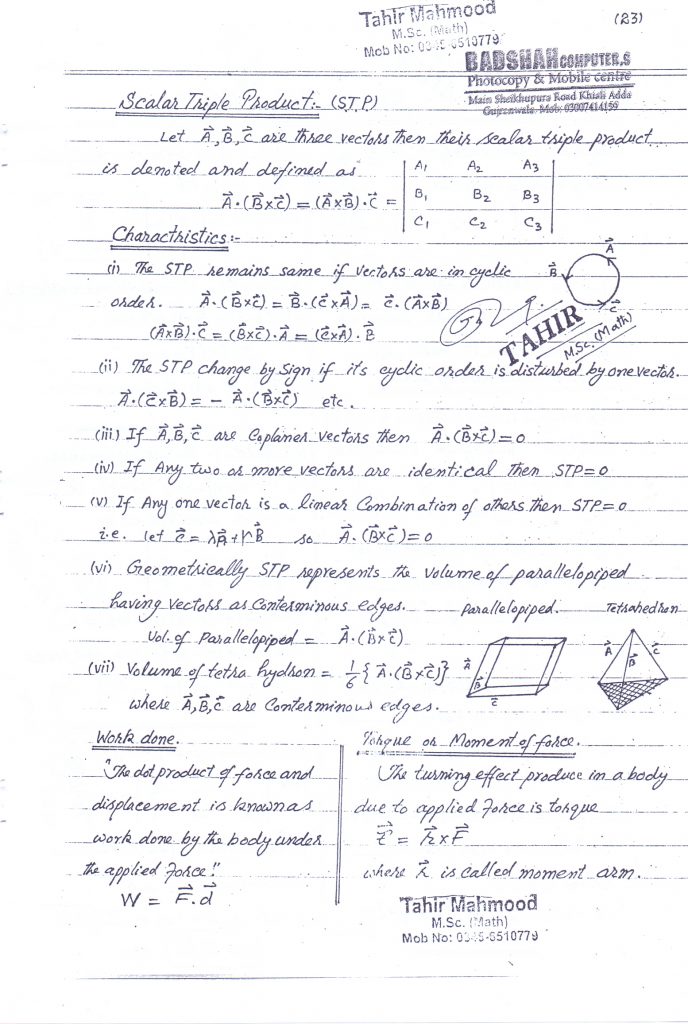 Tahir Mahmood
M.Sc. (Math)
Mob No: 0345-6510779
(23)
BADSHAH COMPUTER,S
Photocopy & Mobile centre
Main Sheikhupura Road Khiali Adda
Gujranwala Mob: 03007414159
Scalar Triple Product:- (S.T.P)
Let A⃗, B⃗, C⃗ are three vectors then their scalar triple product
is denoted and defined as
A⃗.(B⃗×C⃗) = (A⃗×B⃗).C⃗ = | A₁ A₂ A₃ |
| B₁ B₂ B₃ |
| C₁ C₂ C₃ |
Charactristics:-
(i) The STP remains same if vectors are in cyclic
order. A⃗.(B⃗×C⃗) = B⃗.(C⃗×A⃗) = C⃗.(A⃗×B⃗)
(A⃗×B⃗).C⃗ = (B⃗×C⃗).A⃗ = (C⃗×A⃗).B⃗
A⃗
B⃗
C⃗
TAHIR
M.Sc. (Math)
(ii) The STP change by Sign if it's cyclic order is disturbed by one vector.
A⃗.(C⃗×B⃗) = - A⃗.(B⃗×C⃗) etc.
(iii) If A⃗, B⃗, C⃗ are Coplaner vectors then A⃗.(B⃗×C⃗) = 0
(iv) If Any two or more vectors are identical Then STP = 0
(v) If Any one vector is a linear Combination of others then STP = 0
i.e. let C⃗ = λA⃗ + μB⃗ so A⃗.(B⃗×C⃗) = 0
(vi) Geometrically STP represents the volume of parallelopiped
having vectors as Conterminous edges. Parallelopiped. Tetrahedron
Vol. of Parallelopiped = A⃗.(B⃗×C⃗)
(vii) Volume of tetra hydron = 1/6 { A⃗.(B⃗×C⃗)}
where A⃗, B⃗, C⃗ are Conterminous edges.
A⃗
B⃗
C⃗
A⃗
B⃗
C⃗
Work done.
"The dot product of force and
displacement is known as
work done by the body under
the applied Force."
W = F⃗.d⃗
Torque or Moment of force.
The turning effect produce in a body
due to applied Force is torque
τ⃗ = r⃗×F⃗
where r⃗ is called moment arm.
Tahir Mahmood
M.Sc. (Math)
Mob No: 0345-6510779